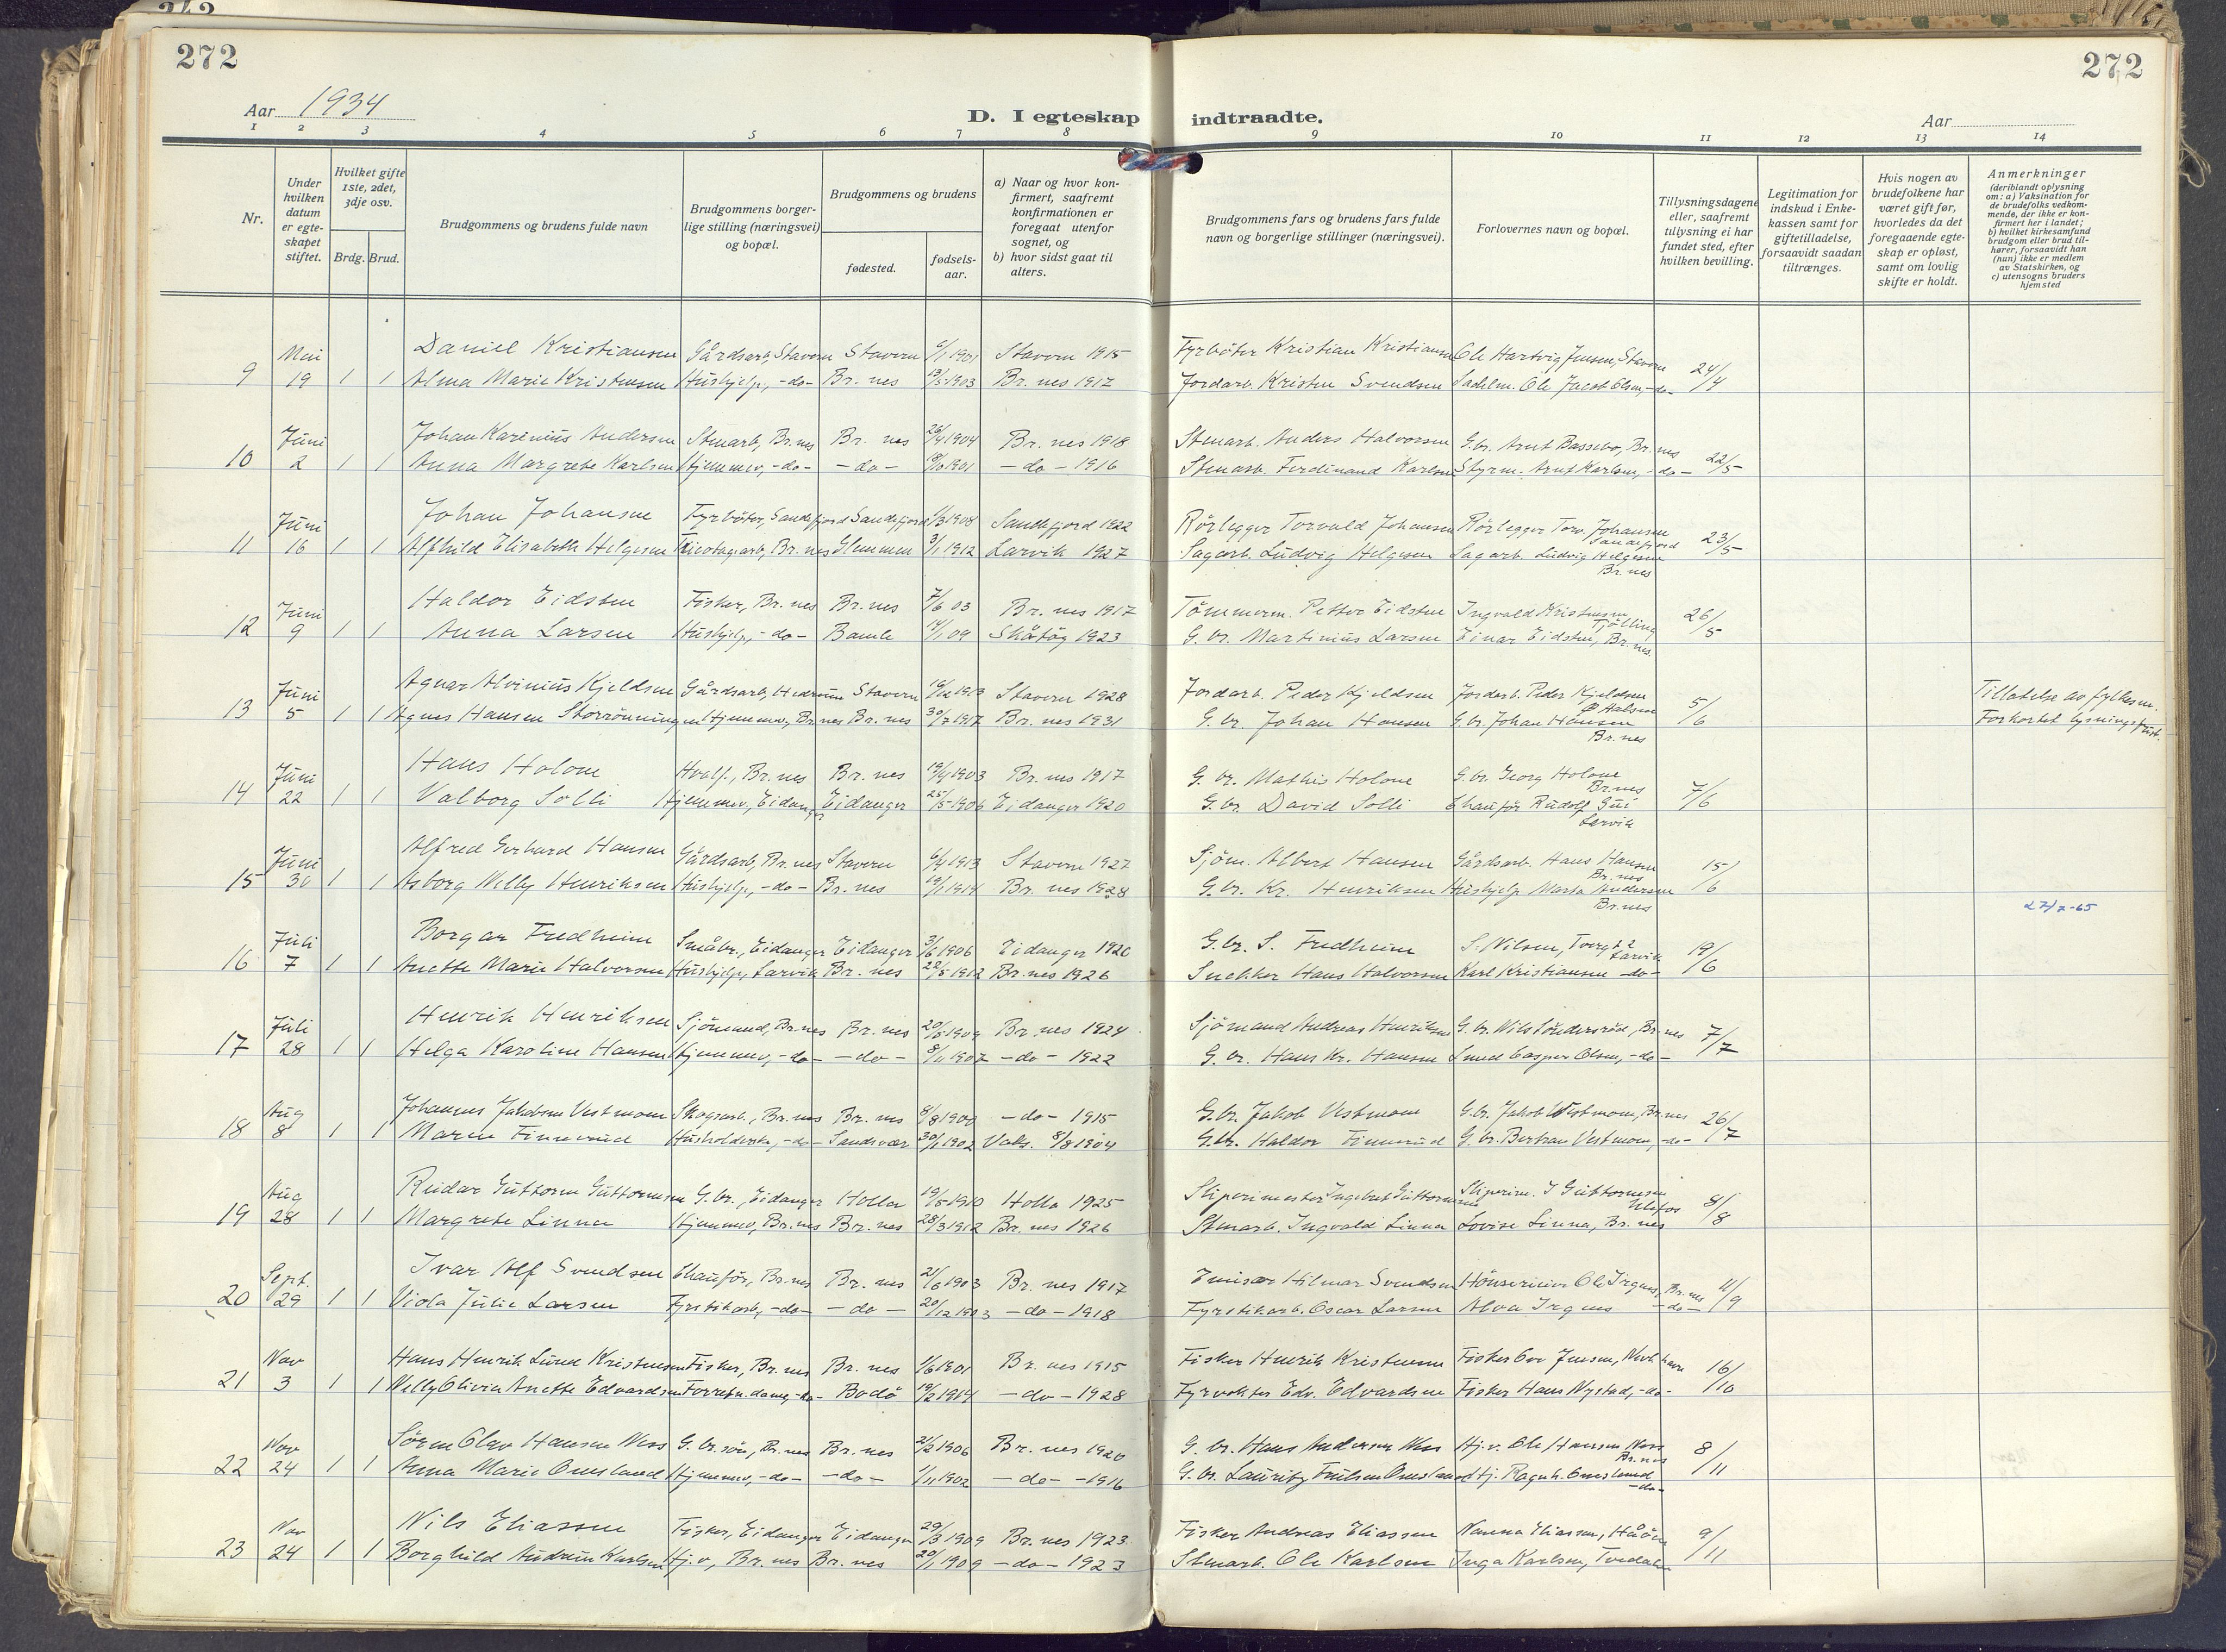 272
272
Aar 1934
D. I egteskap indtraadte.
Aar
1 2 3 4 5 6 7 8 9 10 11 12 13 14
Nr.
Under hvilken datum er egteskapet stiftet.
Hvilket gifte 1ste, 2det, 3dje osv.
Brdg. Brud.
Brudgommens og brudens fulde navn
Brudgommens borgerlige stilling (næringsvei) og bopæl.
Brudgommens og brudens
fødested.
fødselsaar.
a) Naar og hvor konfirmert, saafremt konfirmationen er foregaat utenfor sognet, og
b) hvor sidst gaat til alters.
Brudgommens fars og brudens fars fulde navn og borgerlige stillinger (næringsvei).
Forlovernes navn og bopæl.
Tillysningsdagene eller, saafremt tillysning ei har fundet sted, efter hvilken bevilling.
Legitimation for indskud i Enkekassen samt for giftetilladelse, forsaavidt saadan tiltrænges.
Hvis nogen av brudefolkene har været gift før, hvorledes da det foregaaende egteskap er opløst, samt om lovlig skifte er holdt.
Anmerkninger
(deriblandt oplysning om: a) Vaksination for de brudefolks vedkommende, der ikke er konfirmert her i landet; b) hvilket kirkesamfund brudgom eller brud tilhører, forsaavidt han (hun) ikke er medlem av Statskirken, og c) utensogns bruders hjemsted
Mai Daniel Kristiansen Gårdsarb, Stavern Stavern 6/1 1901 Stavern 1915 Fyrböter Kristian Kristiansen Ole Hartvig Jensen, Stavern
9 19 1 1 Alma Marie Kristensen Hushjelp, -do- Br. nes 1903 Br. nes 1917 Jordarb. Kristen Svendsen Sadelm. Ole Jacob Olsen, -do- 24/4
Juni Johan Karenius Andersen Stenarb, Br. nes Br. nes 26/4 1904 Br. nes 1918 Stenarb. Anders Halvorsen G.br. Arnt Bassebo, Br. nes
10 2 1 1 Anna Margrete Karlsen Hjemmev, -do- -do- 1901 -do- 1916 Stenarb. Ferdinand Karlsen Styrm. Arnt Karlsen, -do- 22/5
Juni Johan Johansen Fyrböter, Sandefjord Sandefjord 1908 Sandefjord 1922 Rörlegger Torvald Johansen Rörlegger Torv. Johansen Sandefjord
11 16 1 1 Alfhild Elisabeth Helgesen Tricotagearb, Br. nes Glemmen 3/1 1912 Larvik 1927 Sagarb. Ludvig Helgesen Sagarb. Ludvig Helgesen Br. nes 23/5
Juni Haldor Eidsten Fisker, Br. nes Br. nes 7/6 03 Br. nes 1917 Tömmerm. Petter Eidsten Ingvald Kristensen Tjölling
12 9 1 1 Anna Larsen Hushjelp, -do- Bamle 09 Skåtøy 1923 G. br. Martinius Larsen Einar Eidsten, Br. nes. 26/5
Juni Agnar Alvinius Kjeldsen Gårdsarb, Hedrum Stavern 1913 Stavern 1928 Jordarb. Peder Kjeldsen Jordarb. Peder Kjeldsen Tillatelse av fylkesm.
13 5 1 1 Agnes Hansen Storrönningen Hjemmev, Br. nes Br. nes 30/7 1917 Br. nes 1931 G. br. Johan Hansen G. br. Johan Hansen Br. nes 5/6 Forkortet lysningsfrist.
Juni Hans Holone Hvalf., Br. nes Br. nes 19/4 1903 Br. nes 1917 G. br. Mathis Holone G. br. Georg Holone Br. nes
14 22 1 1 Valborg Solli Hjemmev, Eidanger Eidanger 25/5 1906 Eidanger 1920 G. br. David Solli Chauför Rudolf Larvik 7/6
Juni Alfred Gerhard Hansen Gårdsarb, Br. nes Stavern 6/4 1913 Stavern 1927 Sjöm. Albert Hansen Gårdsarb. Hans Hansen Br. nes
15 30 1 1 Asborg Nelly Henriksen Hushjelp, -do- Br. nes 19/1 1914 Br. nes 1928 G. br. Kr. Henriksen Hushjelp Marta Andersen Br. nes 15/6
27/7-65
Juli Borgar Fredheim Småbr., Eidanger Eidanger 3/6 1906 Eidanger 1920 G. br. S. Fredheim S. Nilsen, Torgt 2 Larvik
16 7 1 1 Anette Marie Halvorsen Hushjelp, Larvik Br. nes 28/5 1912 Br. nes 1926 Snekker Hans Halvorsen Karl Kristiansen -do- 19/6
Juli Henrik Henriksen Sjömand, Br. nes Br. nes 20/5 1909 Br. nes 1924 Sjömand Andreas Henriksen G. br. Nils Söndersröd, Br. nes
17 28 1 1 Helga Karoline Hansen Hjemmev, -do- -do- 8/11 1907 -do- 1922 G. br. Hans Kr. Hansen Smed Casper Olsen, -do- 7/7
Aug Johannes Jakobsen Vestmoen Skogsarb., Br. nes Br. nes 8/8 1900 -do- 1915 G. br. Jakob Vestmoen G. br. Jakob Vestmoen, Br. nes
18 8 1 1 Maren Finnerud Husholderske, -do- Sandsvær 30/1 1902 Vaks. 8/8 1904 G. br. Haldor Finnerud G. br. Bertran Vestmoen, -do- 26/7
Aug Reidar Guttorm Guttormsen G. br., Eidanger Holla 19/5 1910 Holla 1925 Sliperimester Ingebret Guttormsen Sliperim. I Guttormsen Ulefos
19 28 1 1 Margrete Linna Hjemmev, Br. nes Br. nes 28/3 1912 Br. nes 1926 Stenarb. Ingvald Linna Lovise Linna, Br. nes 8/8
Sept. Ivar Alf Svendsen Chauför, Br. nes Br. nes 21/6 1903 Br. nes 1917 Emisær Hilmar Svendsen Hönserieier Ole Irgens, Br. nes
20 29 1 1 Viola Julie Larsen Fyrstikarb, -do- -do- 20/12 1903 -do- 1918 Fyrstikarb. Oscar Larsen Alva Irgens -do- 11/9
Nov Hans Henrik Lund Kristensen Fisker, Br. nes Br. nes 1901 Br. nes 1915 Fisker Henrik Kristensen Fisker Jensen, Nevlhavn
21 3 1 1 Nelly Olivia Anette Edvardsen Forretn. dame, -do- Bodö 19/2 1914 -do- 1928 Fyrvokter Edv. Edvardsen Fisker Hans Nystad, -do- 16/10
Nov Sören Olav Hansen Ness G. br. sön, Br. nes Br. nes 21/2 1906 Br. nes 1920 G. br. Hans Andersen Ness Hj. v. Ole Hansen Ness Br. nes
22 24 1 1 Anna Marie Omsland Hjemmev, -do- -do- 1/11 1902 -do- 1916 G. br. Lauritz Omsland Hj. Ragnh. Omsland -do- 8/11
Nov Nils Eliassen Fisker, Eidanger Eidanger 29/3 1909 Br. nes 1923 Fisker Andreas Eliassen Nanna Eliassen, Håöen
23 24 1 1 Borghild Audrun Karlsen Hj. v, Br. nes Br. nes 20/1 1909 -do- 1923 Stenarb. Ole Karlsen Inga Karlsen, Tvedalen 9/11